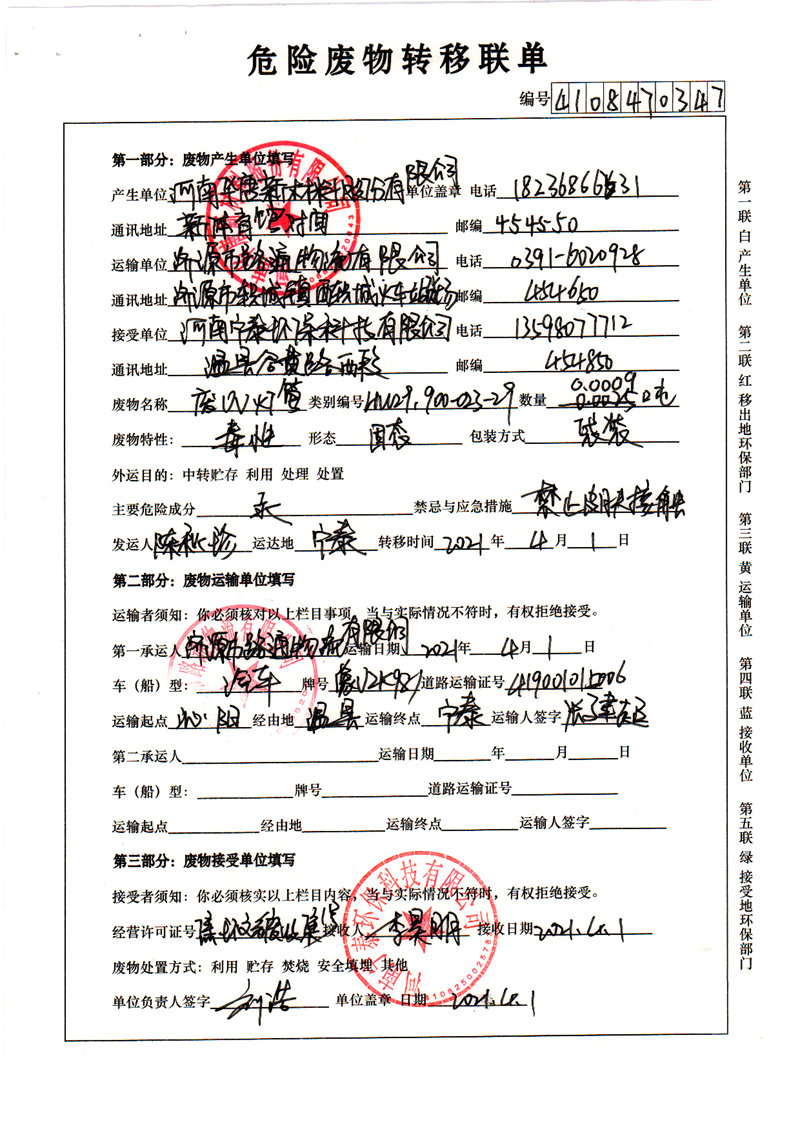 危险废物转移联单
编号 4108470347
第一部分：废物产生单位填写
产生单位 河南 新材料股份有限公司 单位盖章 电话 18236866631
通讯地址 新体育馆对面 邮编 454550
运输单位 济源市路通物流有限公司 电话 0391-6020928
通讯地址 济源市轵城镇西轵城火车站 邮编 454650
接受单位 河南宁泰环保科技有限公司 电话 13598077712
通讯地址 温县谷黄路西 邮编 454850
废物名称 废UV灯管 类别编号 HW29.900-023-29 数量 0.0009
废物特性： 毒性 形态 固态 包装方式 袋装
外运目的：中转贮存 利用 处理 处置
主要危险成分 汞 禁忌与应急措施 禁止皮肤接触
发运人 陈 珍 运达地 宁泰 转移时间 2021 年 4 月 1 日
第二部分：废物运输单位填写
运输者须知：你必须核对以上栏目事项，当与实际情况不符时，有权拒绝接受。
第一承运人 济源市路通物流有限公司 运输日期 2021年 4月 1 日
车（船）型： 汽车 牌号 道路运输证号 419001015006
运输起点 沁阳 经由地 温县 运输终点 宁泰 运输人签字
第二承运人 运输日期 年 月 日
车（船）型： 牌号 道路运输证号
运输起点 经由地 运输终点 运输人签字
第三部分：废物接受单位填写
接受者须知：你必须核实以上栏目内容，当与实际情况不符时，有权拒绝接受。
经营许可证号 接收人 李昊明 接收日期 2021.4.1
废物处置方式：利用 贮存 焚烧 安全填埋 其他
单位负责人签字 刘浩 单位盖章 日期 2021.4.1
第一联 白 产生单位
第二联 红 移出地环保部门
第三联 黄 运输单位
第四联 蓝 接收单位
第五联 绿 接受地环保部门